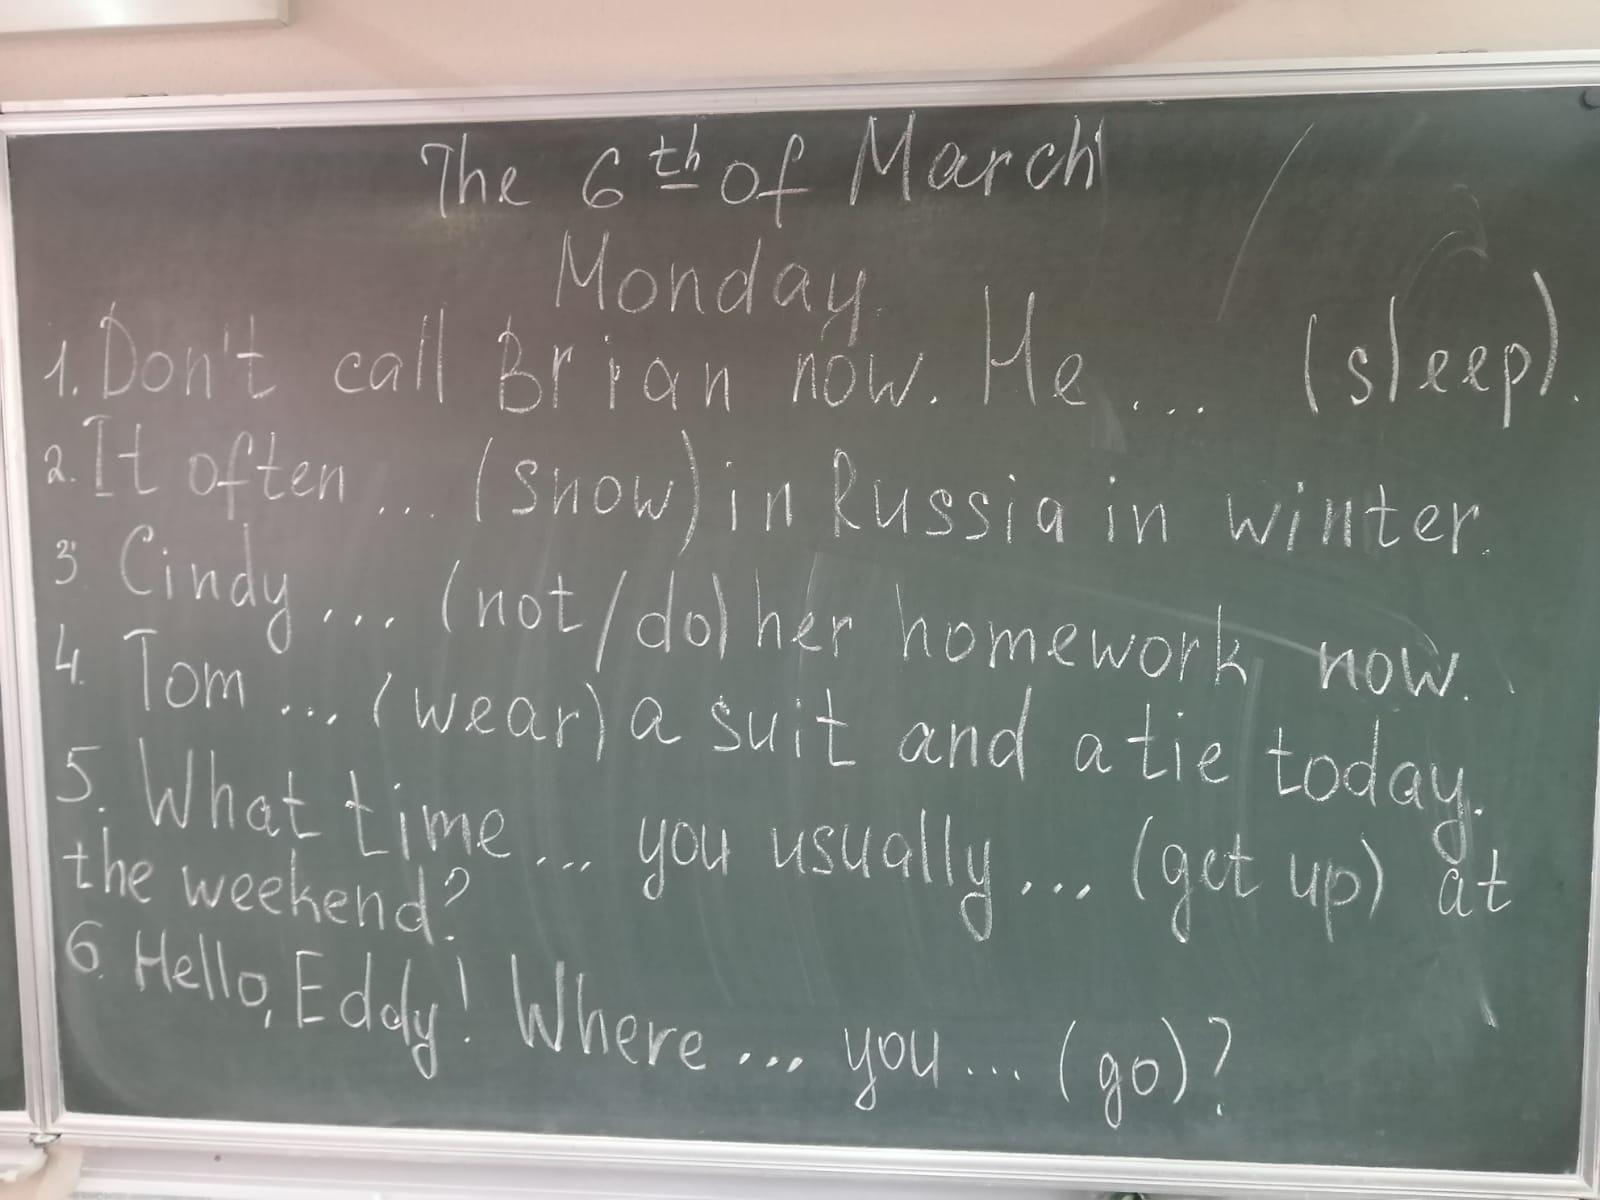 The 6th of March
Monday
1. Don't call Brian now. He ... (sleep).
2. It often ... (snow) in Russia in winter.
3. Cindy ... (not/do) her homework now.
4. Tom ... (wear) a suit and a tie today.
5. What time ... you usually ... (get up) at
the weekend?
6. Hello, Eddy! Where ... you ... (go)?